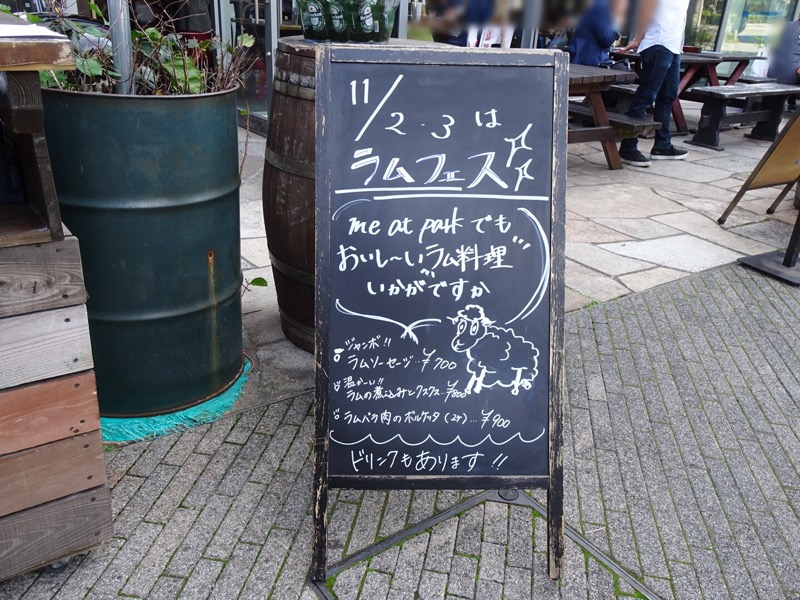 11/2・3は
ラムフェス
me at parkでも
おいし〜いラム料理
いかがですか
ジャンボ!!
ラムソーセージ…¥700
温か〜い!!
ラムの煮込みとクスクス…¥800
ラムバラ肉のポルケッタ(2ケ)…¥900
ドリンクもあります!!